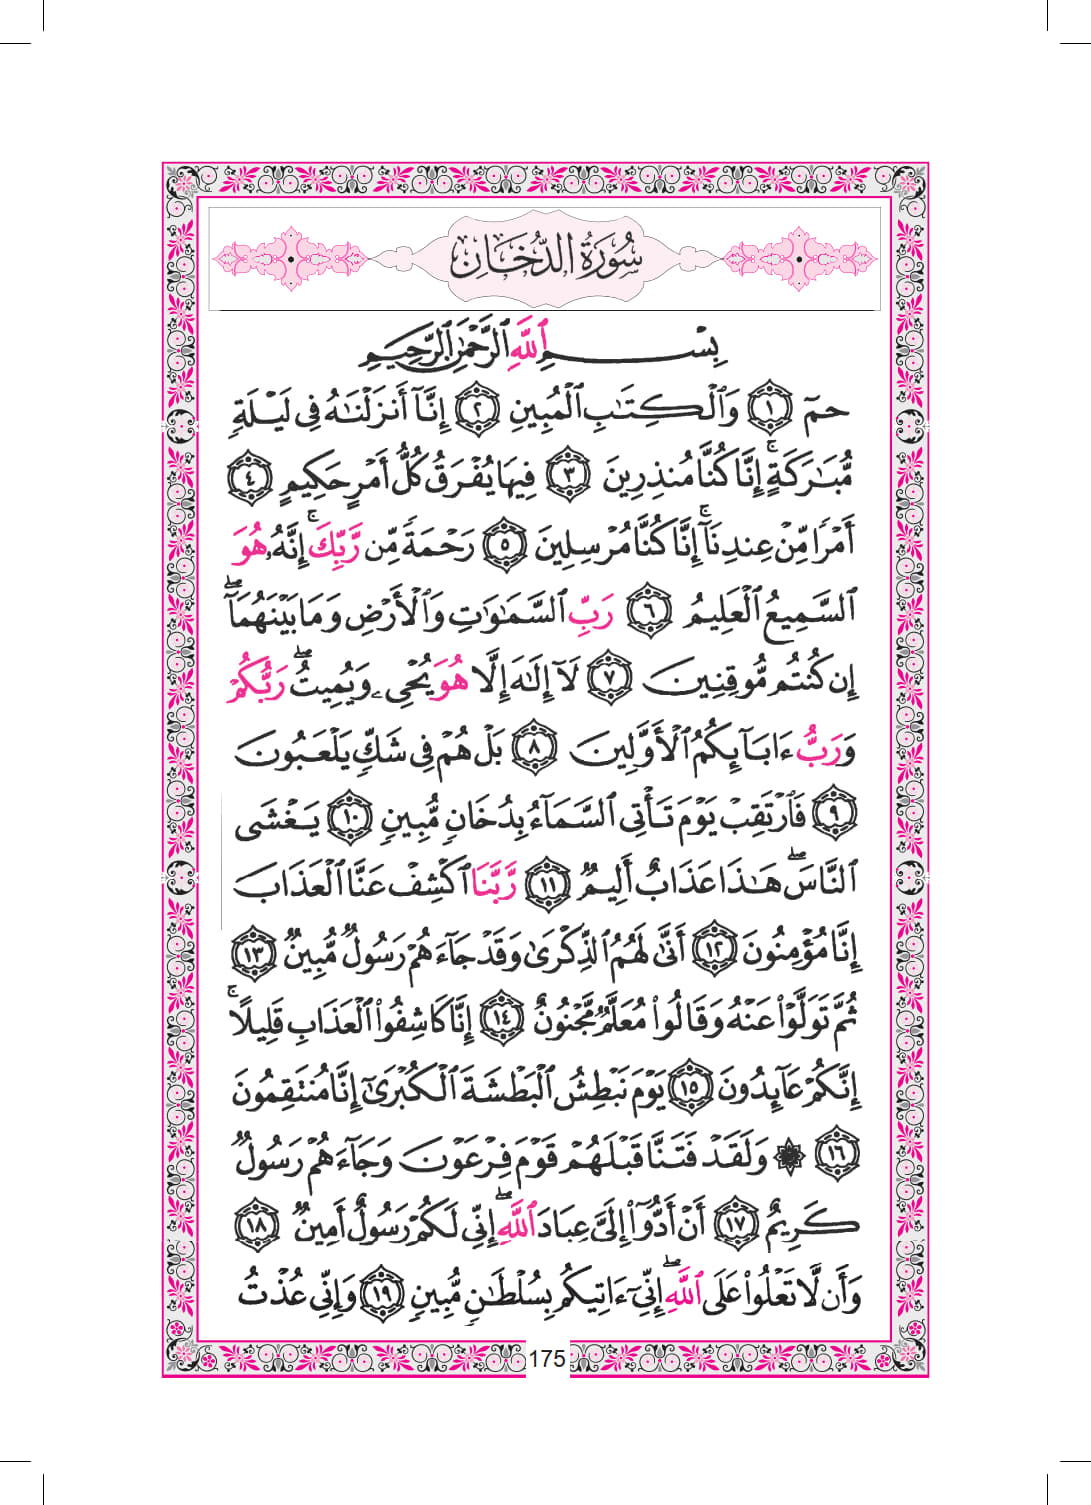 سُورَةُ الدُّخَانِ
بِسْمِ ٱللَّهِ ٱلرَّحْمَٰنِ ٱلرَّحِيمِ
حمٓ ١ وَٱلْكِتَٰبِ ٱلْمُبِينِ ٢ إِنَّآ أَنزَلْنَٰهُ فِى لَيْلَةٍ
مُّبَٰرَكَةٍ ۚ إِنَّا كُنَّا مُنذِرِينَ ٣ فِيهَا يُفْرَقُ كُلُّ أَمْرٍ حَكِيمٍ ٤
أَمْرًا مِّنْ عِندِنَآ ۚ إِنَّا كُنَّا مُرْسِلِينَ ٥ رَحْمَةً مِّن رَّبِّكَ ۚ إِنَّهُۥ هُوَ
ٱلسَّمِيعُ ٱلْعَلِيمُ ٦ رَبِّ ٱلسَّمَٰوَٰتِ وَٱلْأَرْضِ وَمَا بَيْنَهُمَآ ۖ
إِن كُنتُم مُّوقِنِينَ ٧ لَآ إِلَٰهَ إِلَّا هُوَ يُحْىِۦ وَيُمِيتُ ۖ رَبُّكُمْ
وَرَبُّ ءَابَآئِكُمُ ٱلْأَوَّلِينَ ٨ بَلْ هُمْ فِى شَكٍّ يَلْعَبُونَ
٩ فَٱرْتَقِبْ يَوْمَ تَأْتِى ٱلسَّمَآءُ بِدُخَانٍ مُّبِينٍ ١٠ يَغْشَى
ٱلنَّاسَ ۖ هَٰذَا عَذَابٌ أَلِيمٌ ١١ رَّبَّنَا ٱكْشِفْ عَنَّا ٱلْعَذَابَ
إِنَّا مُؤْمِنُونَ ١٢ أَنَّىٰ لَهُمُ ٱلذِّكْرَىٰ وَقَدْ جَآءَهُمْ رَسُولٌ مُّبِينٌ ١٣
ثُمَّ تَوَلَّوْا۟ عَنْهُ وَقَالُوا۟ مُعَلَّمٌ مَّجْنُونٌ ١٤ إِنَّا كَاشِفُوا۟ ٱلْعَذَابِ قَلِيلًا ۚ
إِنَّكُمْ عَآئِدُونَ ١٥ يَوْمَ نَبْطِشُ ٱلْبَطْشَةَ ٱلْكُبْرَىٰٓ إِنَّا مُنتَقِمُونَ
١٦ ۞ وَلَقَدْ فَتَنَّا قَبْلَهُمْ قَوْمَ فِرْعَوْنَ وَجَآءَهُمْ رَسُولٌ
كَرِيمٌ ١٧ أَنْ أَدُّوٓا۟ إِلَىَّ عِبَادَ ٱللَّهِ ۖ إِنِّى لَكُمْ رَسُولٌ أَمِينٌ ١٨
وَأَن لَّا تَعْلُوا۟ عَلَى ٱللَّهِ ۖ إِنِّىٓ ءَاتِيكُم بِسُلْطَٰنٍ مُّبِينٍ ١٩ وَإِنِّى عُذْتُ
175